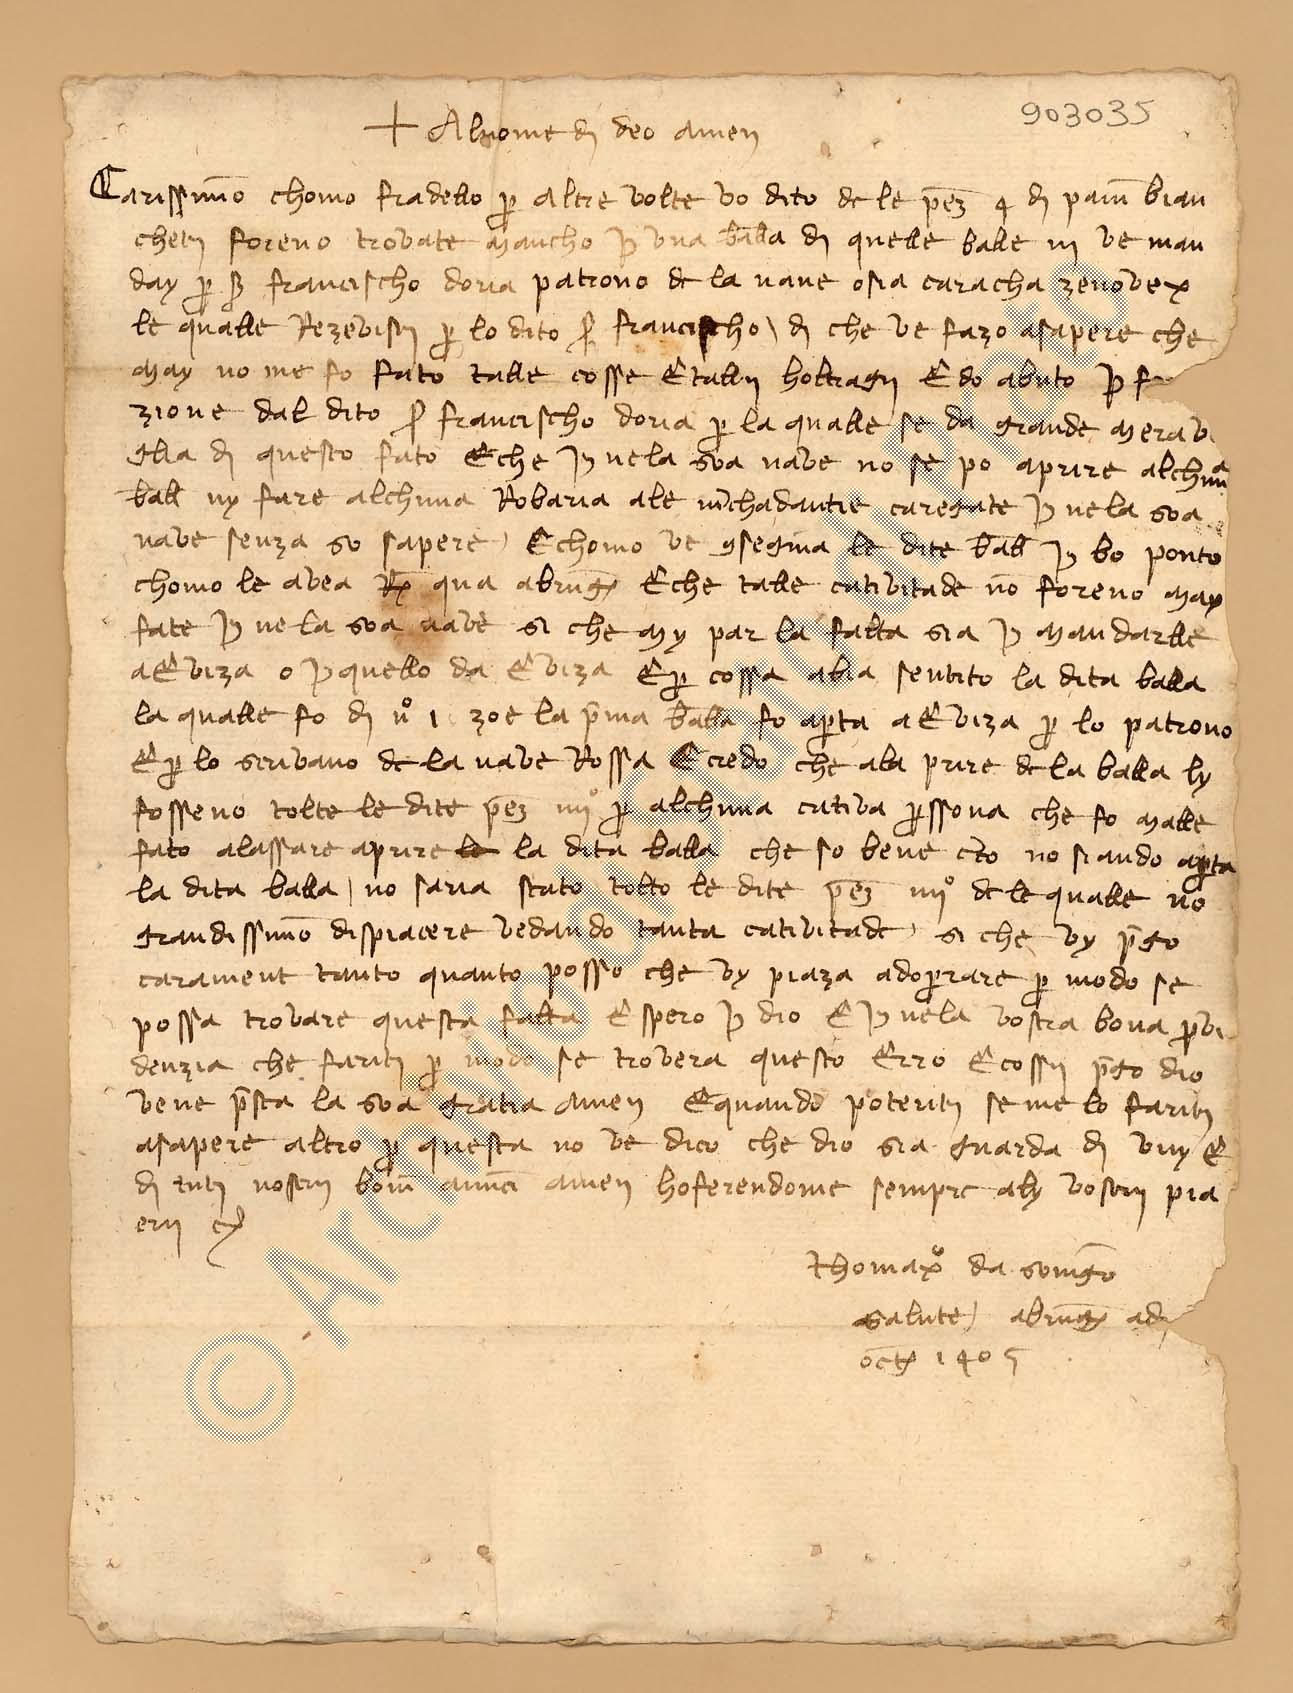 903035
+ Al nome di deo amen
Carissimo chomo fradello per altre volte vo dito de le pez 4 di pani bian
cheti foreno trovate mancho in una balla di quelle balle iii ve man
day per ser francischo doria patrono de la nave osia caracha zenovex
le qualle Rezevisti per lo dito ser francischo di che ve fazo asapere che
may no me fo fato talle cosse e talli holtragi E do abuto in
zione dal dito ser francischo doria per la qualle se da grande meravi
glia di questo fato E che in ne la soa nave no se po aprire alchuna
balla ny fare alchuna Robaria a le merchadantie caregate in ne la soa
nave senza so sapere E chomo ve consegnia le dite balle in bo ponto
chomo le avea qua a bruga E che talle cativitade no foreno may
fate in ne la soa nave si che my par la falta sia in mandarlle
a Eviza o in quello da Eviza E per cossa abia sentito la dita balla
la qualle fo di no 1 zoe la prima balla fo aperta a Eviza per lo patrono
E per lo scrivano de la nave Rossa E credo che ala prire de la balla ly
fosseno tolte le dite pez iiii per alchuna cativa perssona che fo malle
fato a lassare aprire le la dita balla che so bene certo no siando aperta
la dita balla no saria stato tolto le dite pez iiii de le qualle no
grandissimo dispiacere vedando tanta cativitade si che vy prego
carament tanto quanto posso che vy piaza adoperare per modo se
possa trovare questa falta E spero in dio E in ne la vostra bona provi
denzia che fariti per modo se trovera questo Erro E cossi prego dio
vene presta la soa gratia Amen E quando poteriti se me lo fariti
asapere altro per questa no ve dico che dio sia guarda di vuy E
di tuti nostri boni amici amen hoferendome sempre aly vostri pia
eri
Thomaxo da
salute a bruga adi
octo 1405
© Archivio di Stato di Prato